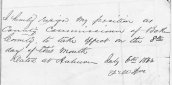 I hereby resign my position as
County Commissioner of Baker
County to take effect on the 8th
day of this Month
Dated at Auburn July 6th 186